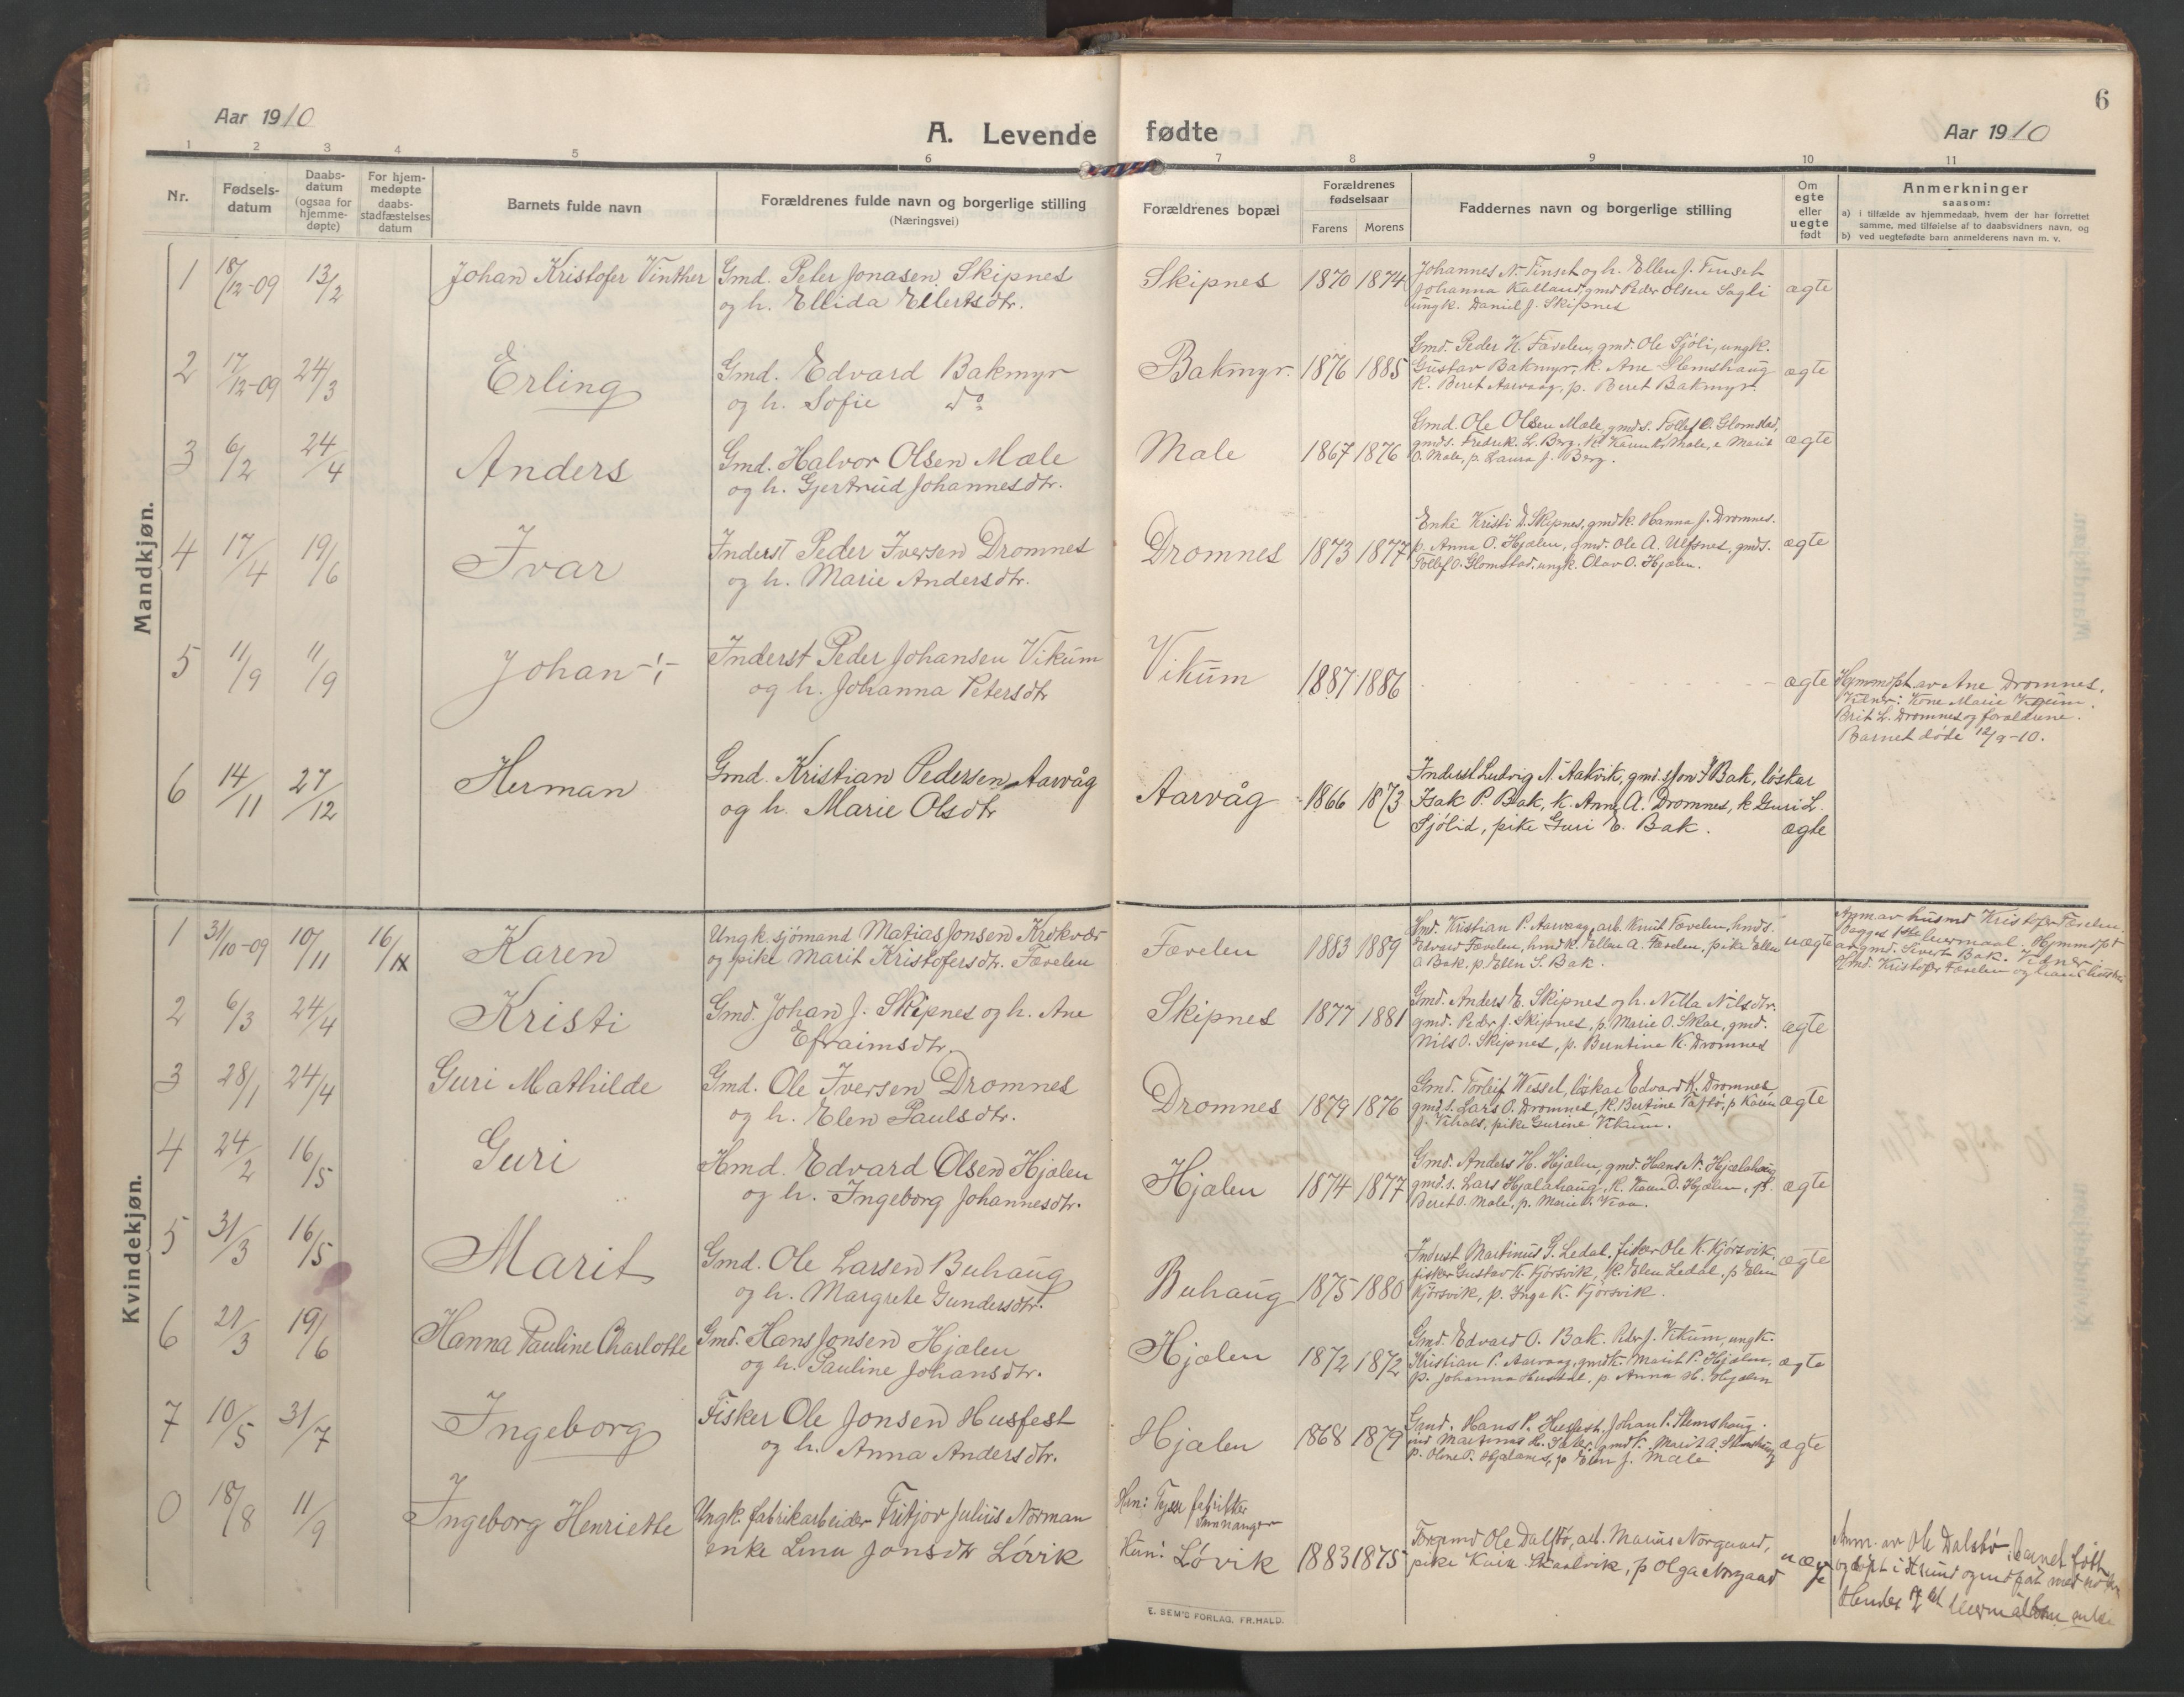 6
Aar 1910
A. Levende fødte
Aar 1910
1 2 3 4 5 6 7 8 9 10 11
Nr.
Fødsels-
datum
Daabs-
datum
(ogsaa for
hjemme-
døpte)
For hjem-
medøpte
daabs-
stadfæstelses
datum
Barnets fulde navn
Forældrenes fulde navn og borgerlige stilling
(Næringsvei)
Forældrenes bopæl
Forældrenes
fødselsaar
Farens Morens
Faddernes navn og borgerlige stilling
Om
egte
eller
uegte
født
Anmerkninger
saasom:
a) i tilfælde av hjemmedaab, hvem der har forrettet
samme, med tilføielse af to daabsvidners navn, og
b) ved uegtefødte barn anmelderens navn m. v.
Mandkjøn.
1 18/12-09 13/2 Johan Kristofer Vinther Gmd. Peter Jonasen Skipnes
og h. Ellida Ellertsdtr.
Skipnes 1870 1874 Johannes N. Tinset og h. Ellen J. Tinset
Johanna Kalland, gmd Peder Olsen Sagli
ungk. Daniel J. Skipnes
ægte
2 17/12-09 24/3 Erling Gmd. Edvard Bakmyr
og h. Sofie do
Bakmyr. 1876 1885 Gmd. Peder H. Fævelen, gmd. Ole Sjøli, ungk.
Gustav Bakmyr, k. Ane Hemshaug
k. Beret Aarvaag, p. Beret Bakmyr.
ægte
3 6/2 24/4 Anders Gmd. Halvor Olsen Mæle
og h. Gjertrud Johannesdtr.
Male 1867 1876 Gmd. Ole Olsen Mæle, gmds. Tollef O. Glomstad,
gmds. Fredrik L. Berg. Male, e Marit
O. Male, p. Laura J. Berg.
ægte
4 17/4 19/6 Ivar Inderst Peder Iversen Dromnes
og h. Marie Andersdtr.
Dromnes 1873 1877 Enke Kristi D. Skipnes, gmdk. Hanna J. Dromnes.
p. Anna O. Hjælen, gmd. Ole A. Ulfsnes, gmds.
Tollef O. Glomstad, ungk. Olav O. Hjælen.
ægte
5 11/9 11/9 Johan -!- Inderst Peder Johansen Vikum
og h. Johanna Petersdtr
Vikum 1887 1886 ægte Hjemmdøpt av Ane Dromnes.
Vidner: Kone Marie Vikum.
Brit L. Dromnes og forældrene.
Barnet døde 12/9-10.
6 14/11 27/12 Herman Gmd. Kristian Pedersen Aarvåg
og h. Marie Olsdtr
Aarvåg 1866 1873 Inderst Ludvig N. Aakvik, gmd. Jon I Bak, løskar
Isak P. Bak, k. Anne A. Dromnes, k Guri L.
Sjølid, pike Guri E. Bak.
ægte
Kvindekjøn.
1 31/10-09 10/11 16/ Karen Ungk. sjømand Matias Jonsen Krokvær
og pike Marit Kristofersdtr. Fævelen
Fævelen 1883 1889 Gmd. Kristian P. Aarvaag, arb. Knut Fævelen, hmds.
Edvard Fævelen, hmdk. Ellen A. Fævelen, pike Ellen
A Bak, p. Ellen S. Bak.
uægte Anm av husmd Kristofer Fævelen.
Begges 1ste leiermaal. Hjmmdøpt
av gmd. Sivert Bak. Vidner:
Hmd. Kristofer Fævelen og hans hustru
2 6/3 24/4 Kristi Gmd. Johan J. Skipnes og h. Ane
Efraimsdtr.
Skipnes 1877 1881 Gmd. Anders E. Skipnes og h. Nilla Nilsdtr.
gmd. Peder J. Skipnes, p. Marie O. Skar, gmd.
Nils O. Skipnes, p. Berntine K. Dromnes
ægte
3 28/1 24/4 Guri Mathilde Gmd. Ole Iversen Dromnes
og h. Elen Paulsdtr.
Dromnes 1879 1876 Gmd. Torleif Wessel, løskar Edvard K. Dromnes
gmds. Lars O. Dromnes, k. Bertine Taftø, p Karen
J. pike Gurine Vikum.
ægte
4 24/2 16/5 Guri Hmd. Edvard Olsen Hjælen
og h. Ingeborg Johannesdtr.
Hjælen 1874 1877 Gmd. Anders H. Hjælen, gmd. Hans N. Hjælahaug
gmds. Lars Hjælahaug, k. Karen O. Hjælen, p.
Beret O. Male, p. Marie
ægte
5 31/3 16/5 Marit Gmd. Ole Larsen Buhaug
og h. Margrete Gundersdtr.
Buhaug 1875 1880 Inderst Martinus G. Ledal, fisker Ole K. Kjørsvik,
fisker Gustav K. Kjørsvik, k. Elen Ledal, p Elen
Kjørsvik, p. Inga K. Kjørsvik.
ægte
6 21/3 19/6 Hanna Pauline Charlotte Gmd. Hans Jonsen Hjælen
og h. Pauline Johansdtr.
Hjælen 1872 1872 Gmd. Edvard O. Bak. Peder J. Vikum, ungk.
Kristian P. Aarvaag, gmdk. Marit P. Hjælen,
p. Johanna Husdal, p. Anna H. Hjælen
ægte
7 10/5 31/7 Ingeborg Fisker Ole Jonsen Husfest
og h. Anna Andersdtr.
Hjælen 1868 1879 Gmd. Hans P. Husfest, Johan P. Stemshaug.
Martinus H. gmdk. Marit A. Stemshaug
p. Oline P. p Elen J. Male
ægte
0 18/8 11/9 Ingeborg Henriette Ungk. fabrikarbeider Fritjor Julius Norman
enke Lena Jonsdtr Løvik
Han: fabrikker
Hun: Løvik 1883 1875 Forpmd Ole Dalsbø, arb. Marius Norgaard,
pike Karen Skaalvik, p Olga Norgaad
uægte Anm. av Ole Dalsbø. Barnet født
og døpt i
Hendes
E. SEM'S FORLAG, FR.HALD.